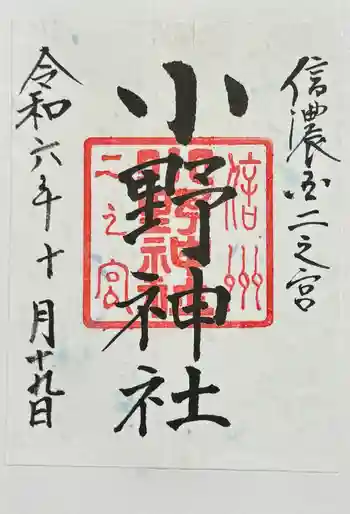 信濃国二之宮
小野神社
信州
小野神社
二之宮
令和六年十月十九日